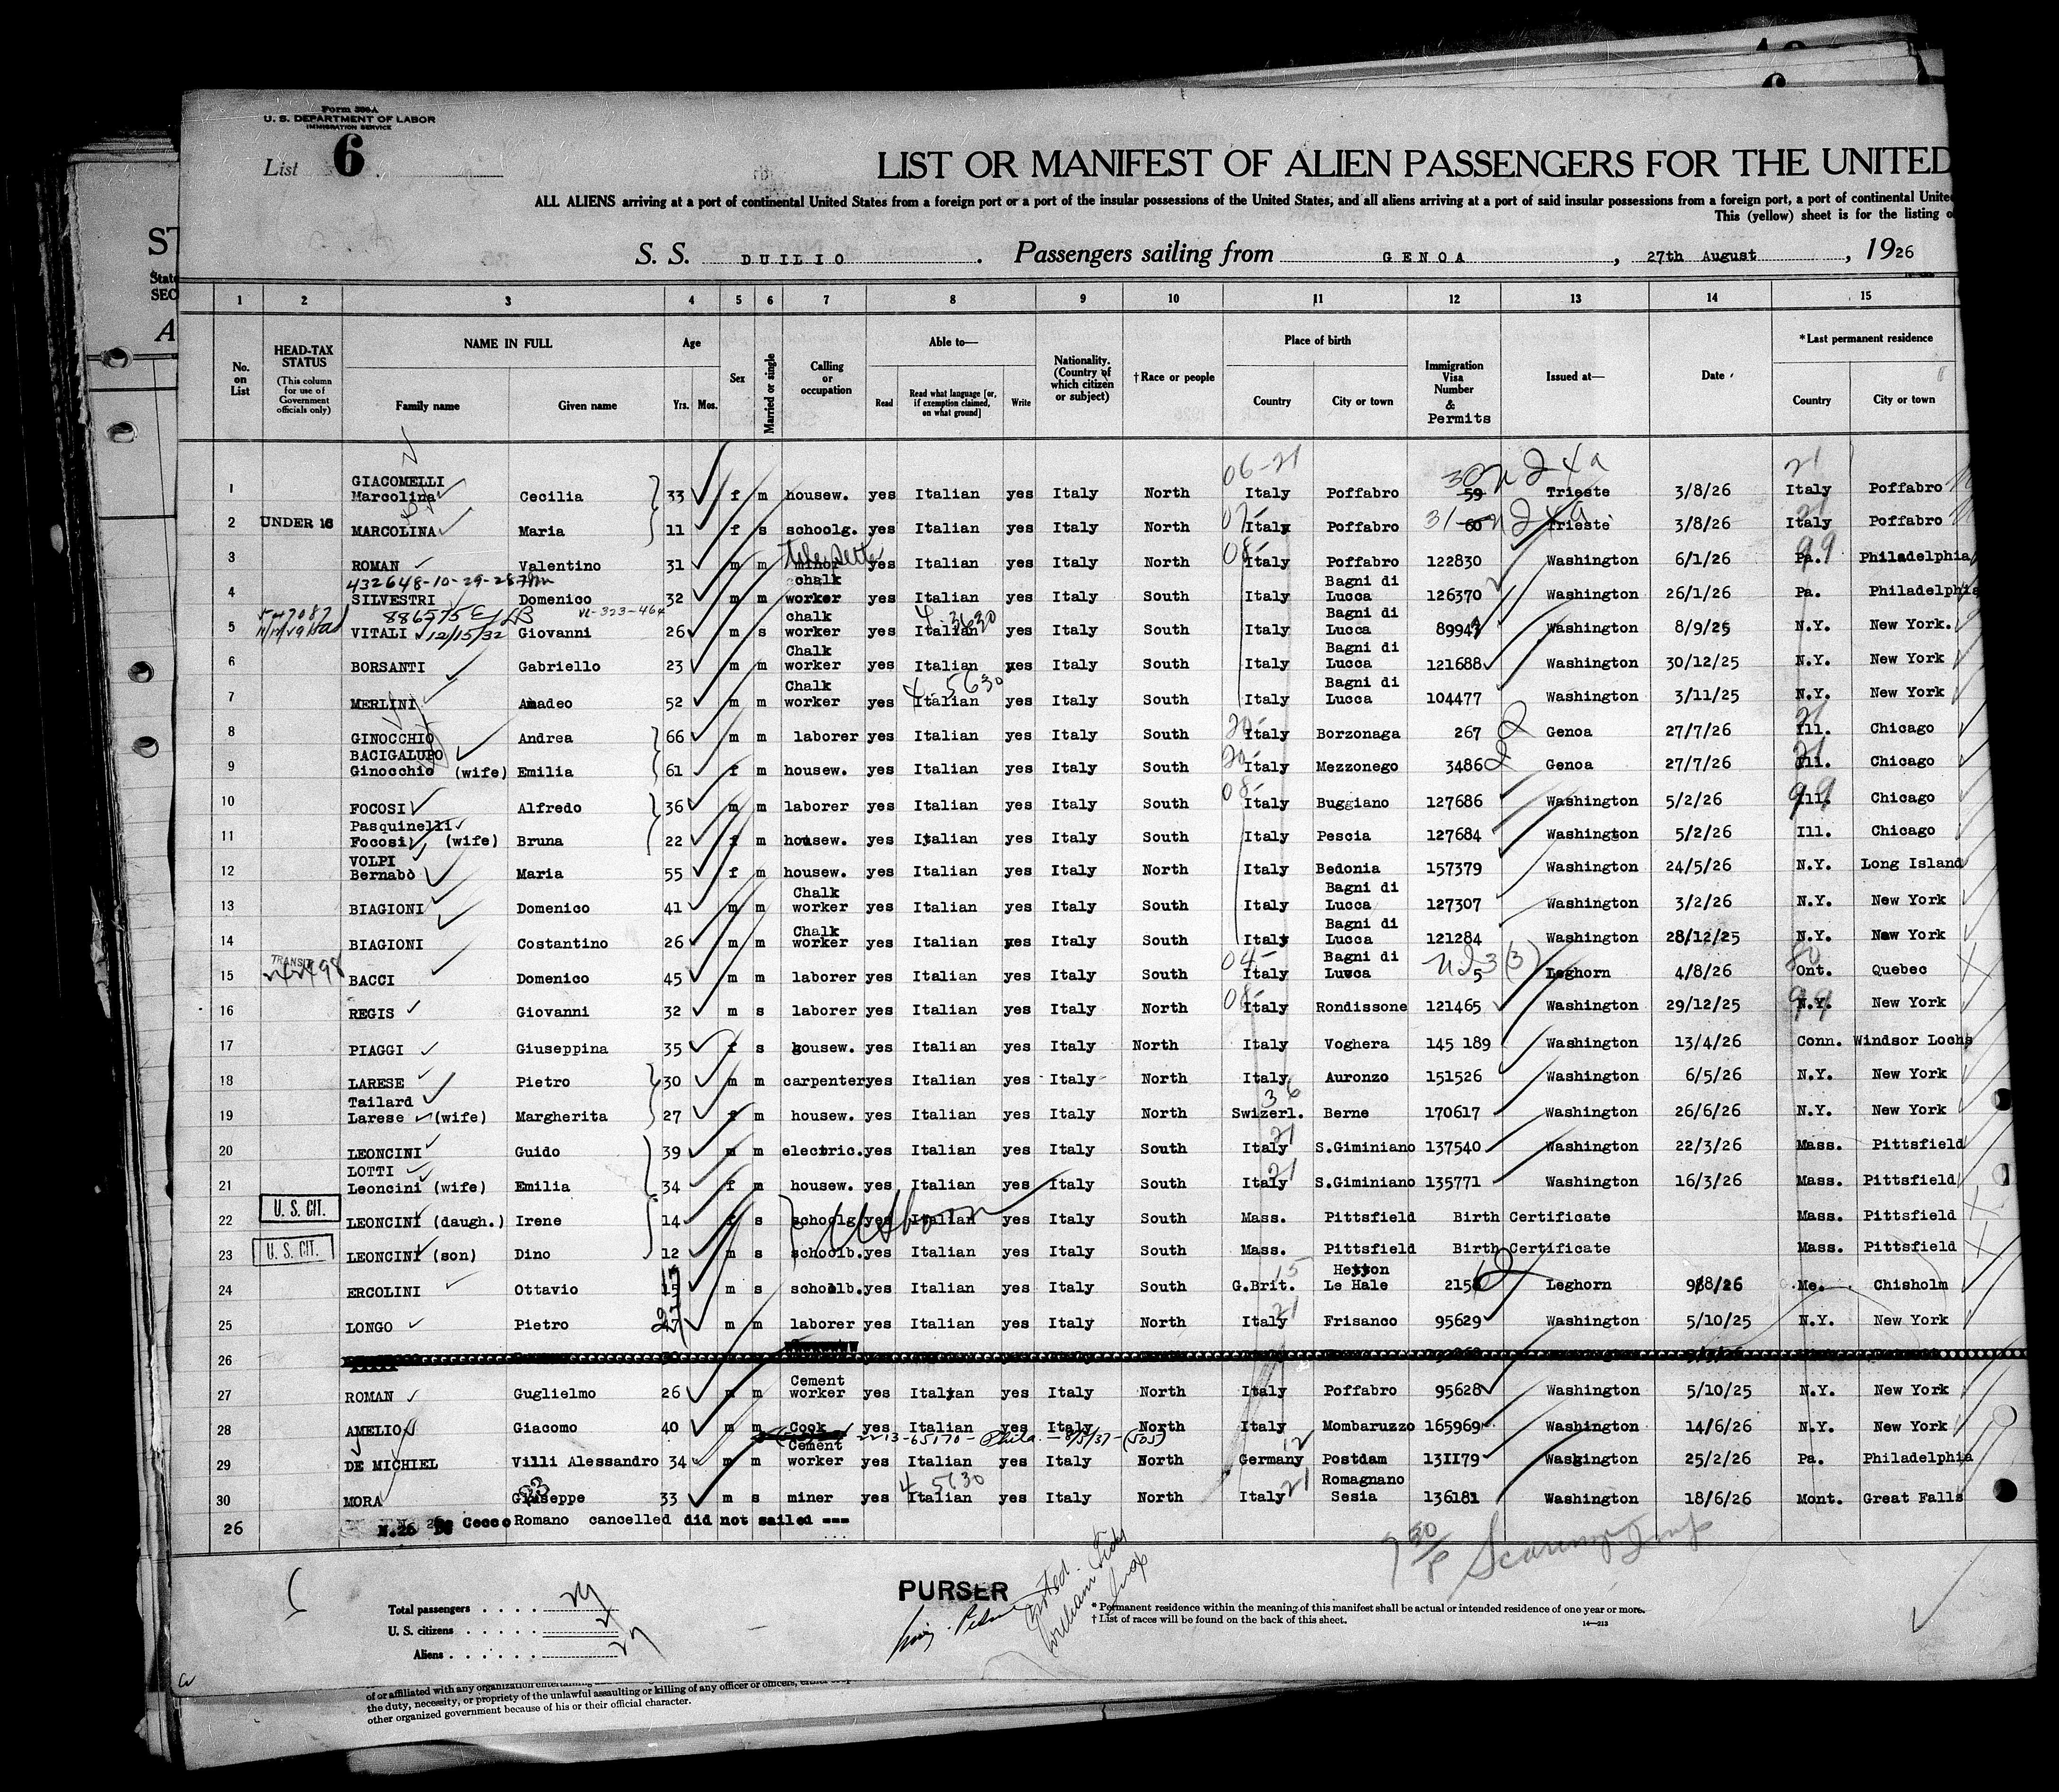 Form 500-A
U. S. DEPARTMENT OF LABOR
IMMIGRATION SERVICE
List 6
LIST OR MANIFEST OF ALIEN PASSENGERS FOR THE UNITED
ALL ALIENS arriving at a port of continental United States from a foreign port or a port of the insular possessions of the United States, and all aliens arriving at a port of said insular possessions from a foreign port, a port of continental Unite
This (yellow) sheet is for the listing o
S. S. DUILIO. Passengers sailing from GENOA, 27th August, 1926
1 2 3 4 5 6 7 8 9 10 11 12 13 14 15
No. on List
HEAD-TAX STATUS (This column for use of Government officials only)
NAME IN FULL Family name Given name
Age Yrs. Mos.
Sex
Married or single
Calling or occupation
Able to— Read Read what language [or, if exemption claimed, on what ground] Write
Nationality. (Country of which citizen or subject)
†Race or people
Place of birth Country City or town
Immigration Visa Number & Permits
Issued at—
Date
*Last permanent residence Country City or town
1 GIACOMELLI Marcolina Cecilia 33 f m housew. yes Italian yes Italy North 06-21 Italy Poffabro 59 Trieste 3/8/26 21 Italy Poffabro
2 UNDER 16 MARCOLINA Maria 11 f s schoolg. yes Italian yes Italy North Italy Poffabro 60 Trieste 3/8/26 Italy Poffabro
3 ROMAN Valentino 31 m m minor yes Italian yes Italy North Italy Poffabro 122830 Washington 6/1/26 Pa. 99 Philadelphia
432648-10-29-28
4 SILVESTRI Domenico 32 m m chalk worker yes Italian yes Italy South Italy Bagni di Lucca 126370 Washington 26/1/26 Pa. Philadelphia
886575 12/15/32
5 VITALI Giovanni 26 m s chalk worker yes Italian yes Italy South Italy Bagni di Lucca 89947 Washington 8/9/25 N.Y. New York.
6 BORSANTI Gabriello 23 m m Chalk worker yes Italian yes Italy South Italy Bagni di Lucca 121688 Washington 30/12/25 N.Y. New York
7 MERLINI Amadeo 52 m m Chalk worker yes 4 5630 Italian yes Italy South Italy Bagni di Lucca 104477 Washington 3/11/25 N.Y. New York
8 GINOCCHIO Andrea 66 m m laborer yes Italian yes Italy South Italy Borzonaga 267 Genoa 27/7/26 21 Ill. Chicago
9 BACIGALUPO Ginocchio (wife) Emilia 61 f m housew. yes Italian yes Italy South Italy Mezzonego 3486 Genoa 27/7/26 21 Ill. Chicago
10 FOCOSI Alfredo 36 m m laborer yes Italian yes Italy South 08- Italy Buggiano 127686 Washington 5/2/26 99 Ill. Chicago
11 Pasquinelli Focosi (wife) Bruna 22 f m housew. yes Italian yes Italy South Italy Pescia 127684 Washington 5/2/26 Ill. Chicago
12 VOLPI Bernabò Maria 55 f m housew. yes Italian yes Italy North Italy Bedonia 157379 Washington 24/5/26 N.Y. Long Island
13 BIAGIONI Domenico 41 m m Chalk worker yes Italian yes Italy South Italy Bagni di Lucca 127307 Washington 3/2/26 N.Y. New York
14 BIAGIONI Costantino 26 m m Chalk worker yes Italian yes Italy South Italy Bagni di Lucca 121284 Washington 28/12/25 N.Y. New York
15 TRANSIT BACCI Domenico 45 m m laborer yes Italian yes Italy South 04- Italy Bagni di Luvca 5 Leghorn 4/8/26 Ont. Quebec
16 REGIS Giovanni 32 m s laborer yes Italian yes Italy North Italy Rondissone 121465 Washington 29/12/25 99 N.Y. New York
17 PIAGGI Giuseppina 35 f s housew. yes Italian yes Italy North Italy Voghera 145 189 Washington 13/4/26 Conn. Windsor Lochs
18 LARESE Pietro 30 m m carpenter yes Italian yes Italy North Italy Auronzo 151526 Washington 6/5/26 N.Y. New York
19 Tailard Larese (wife) Margherita 27 f m housew. yes Italian yes Italy North 36 Swizerl. Berne 170617 Washington 26/6/26 N.Y. New York
20 LEONCINI Guido 39 m m electric. yes Italian yes Italy South Italy 21 S.Giminiano 137540 Washington 22/3/26 Mass. Pittsfield
21 LOTTI Leoncini (wife) Emilia 34 f m housew. yes Italian yes Italy South Italy 21 S.Giminiano 135771 Washington 16/3/26 Mass. Pittsfield
22 U. S. CIT. LEONCINI (daugh.) Irene 14 f s schoolg. yes Italian yes Italy South Mass. Pittsfield Birth Certificate Mass. Pittsfield
US born
23 U. S. CIT. LEONCINI (son) Dino 12 m s schoolb. yes Italian yes Italy South Mass. Pittsfield Birth Certificate Mass. Pittsfield
24 ERCOLINI Ottavio 15 m s schoolb. yes Italian yes Italy South 15 G.Brit. Hetton Le Hale 2158 Leghorn 9/8/26 Me. Chisholm
25 LONGO Pietro 27 m m laborer yes Italian yes Italy North Italy 21 Frisanco 95629 Washington 5/10/25 N.Y. New York
26
27 ROMAN Guglielmo 26 m m Cement worker yes Italian yes Italy North Italy Poffabro 95628 Washington 5/10/25 N.Y. New York
28 AMELIO Giacomo 40 m m Cook yes Italian yes Italy North Italy Mombaruzzo 165969 Washington 14/6/26 N.Y. New York
2213-65170- Phila. - 8/5/37- (505)
29 DE MICHIEL Villi Alessandro 34 m m Cement worker yes Italian yes Italy North Germany 12 Postdam 131179 Washington 25/2/26 Pa. Philadelphia
30 MORA Giuseppe 33 m s miner yes 4 5630 Italian yes Italy North Italy 21 Romagnano Sesia 136181 Washington 18/6/26 Mont. Great Falls
26 N.26 De Cecco Romano cancelled did not sailed ---
PURSER
Total passengers . . . . 29
U. S. citizens . . . . . 2
Aliens . . . . . . 27
* Permanent residence within the meaning of this manifest shall be actual or intended residence of one year or more.
† List of races will be found on the back of this sheet.
14—213
of or affiliated with any organization entertaining
the duty, necessity, or propriety of the unlawful assaulting or killing of any officer or officers,
other organized government because of his or their official character.